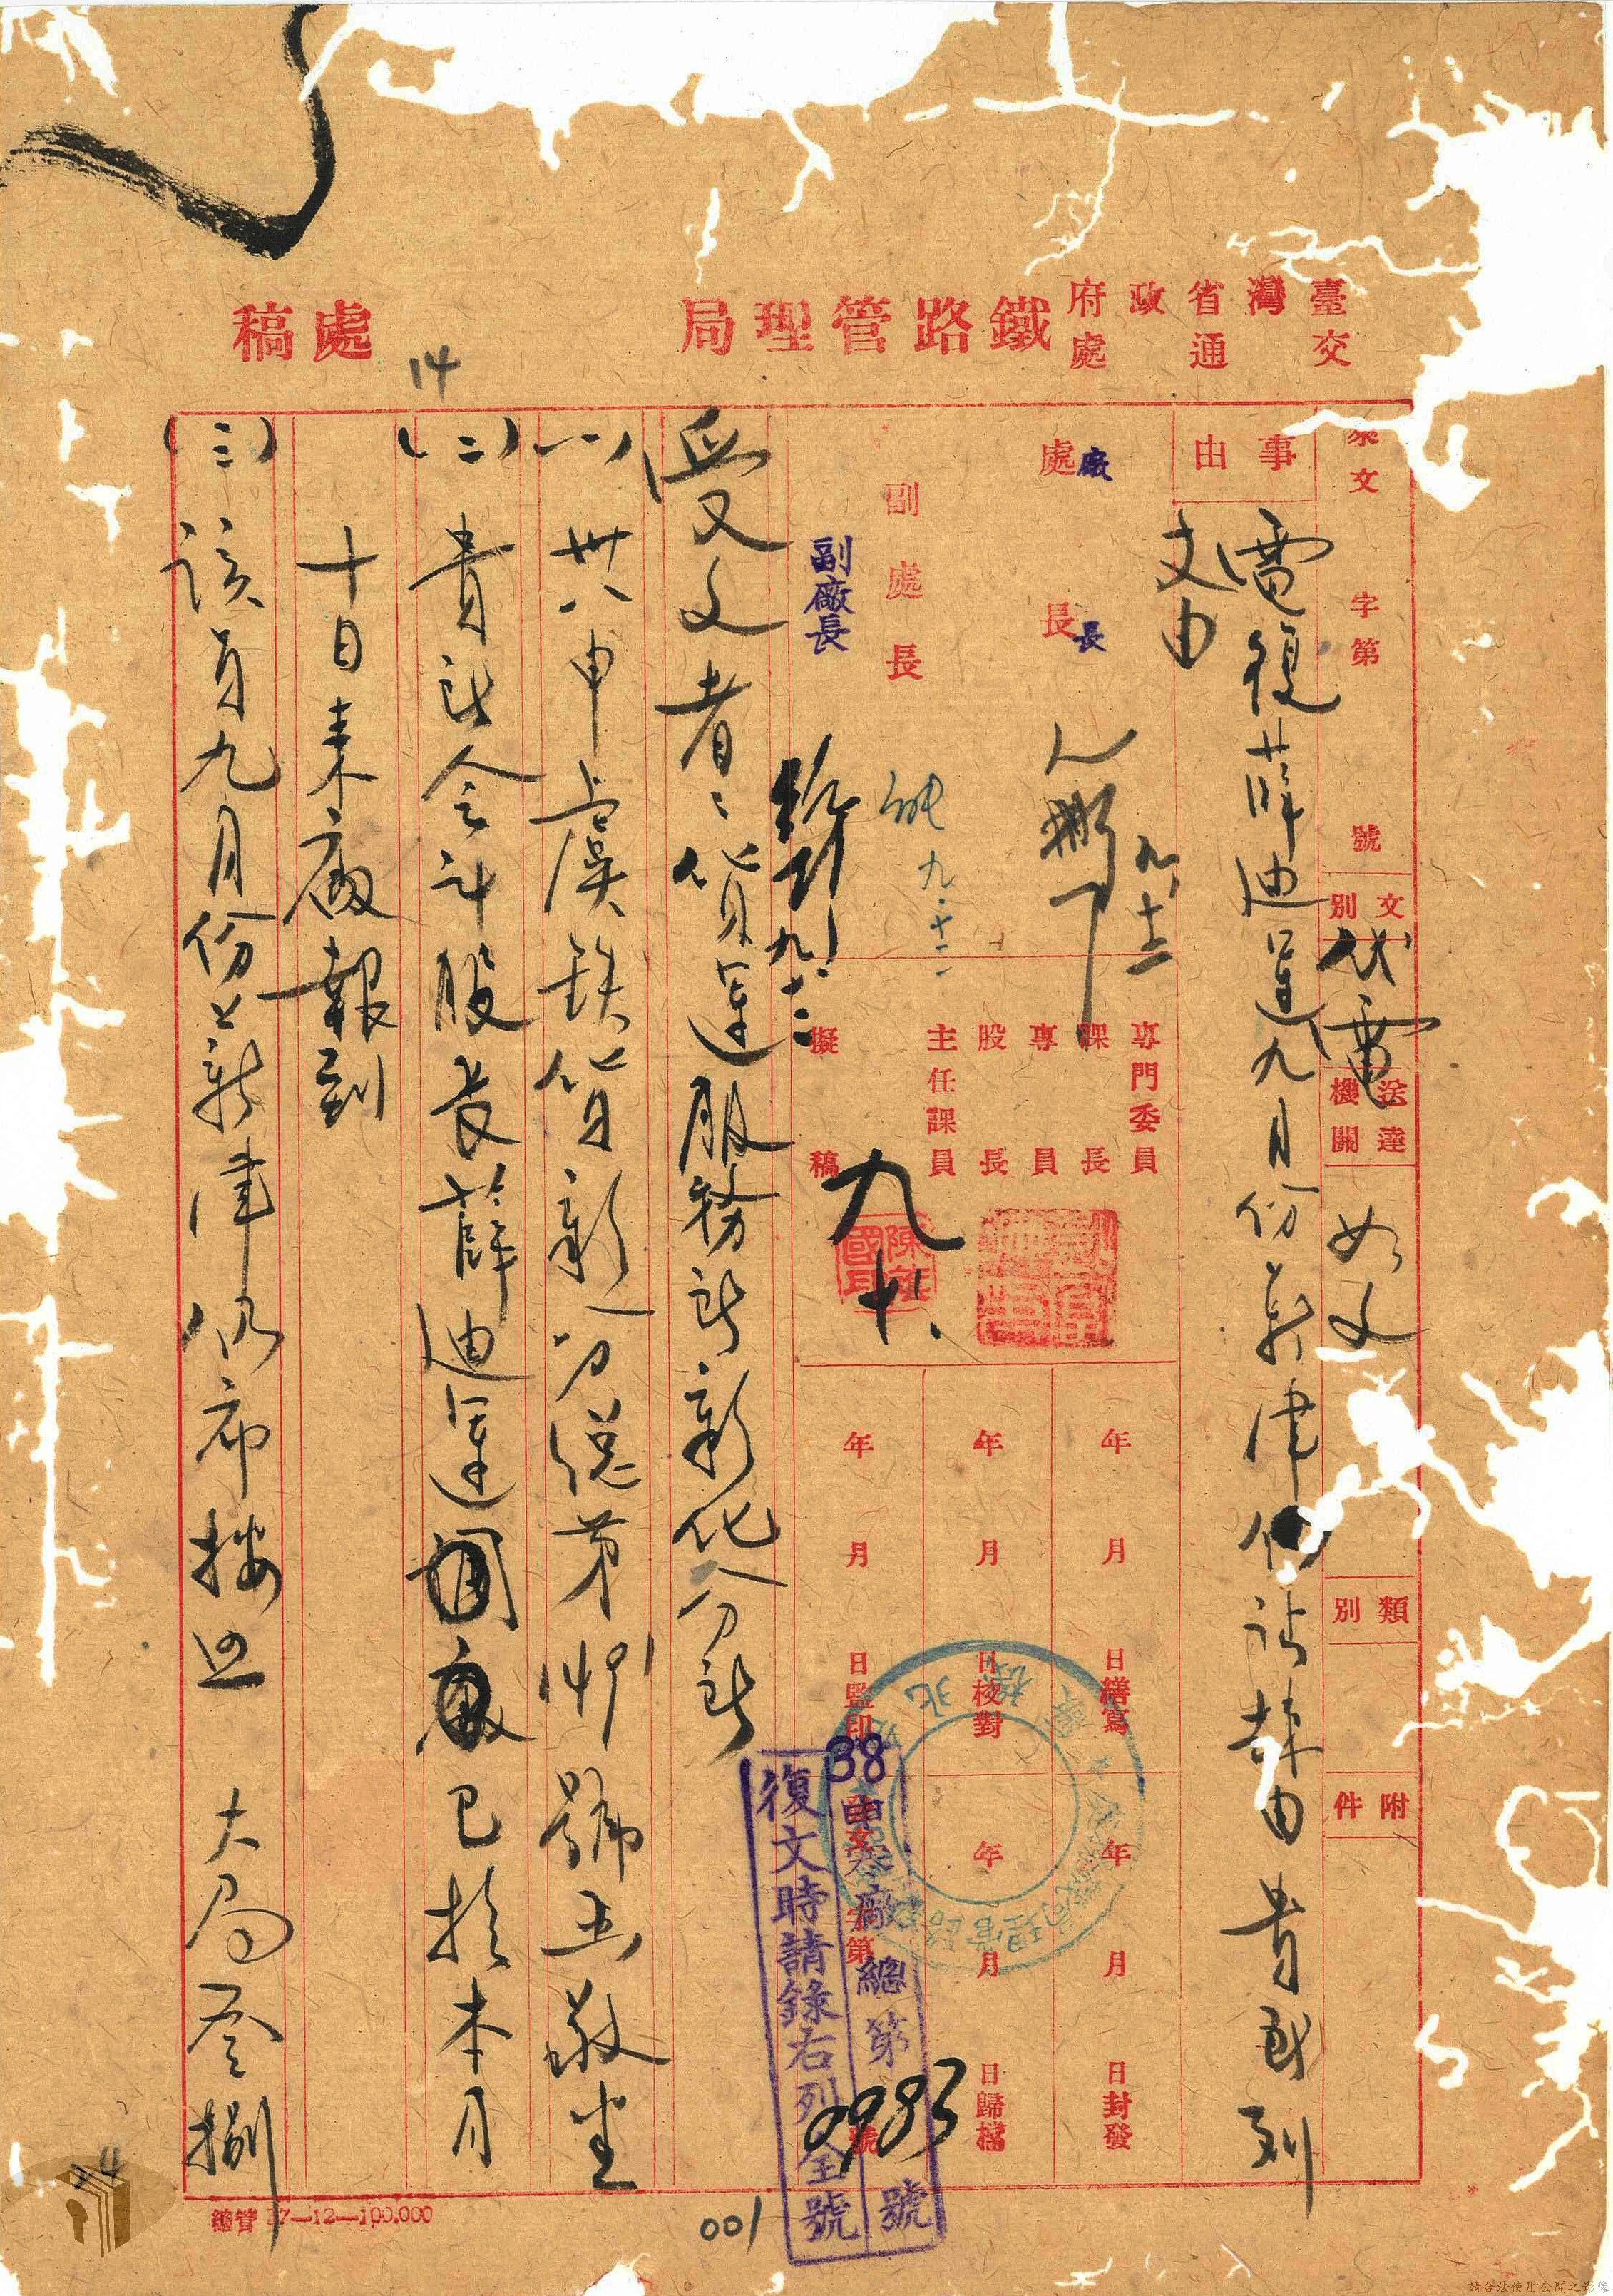 臺灣省政府
交通處
鐵路管理局
處稿
14
來文 字第 號
文別 代電
送達機關 如文
類別
附件
事由
電復薛迪運九月份薪津仍請由貴所列
支由
處長
廠長
副處長
副廠長
九.十二
九.十二
專門委員
課長
專員
股長
主任課員
擬稿
九.十
年 月 日繕寫
年 月 日校對
年 月 日監印
年 月 日封發
年 月 日歸檔
38申 廠總第0983號
復文時請錄右列全號
受文者：貨運服務所新化分所
(一)卅八申虞鉄貨新分總第 號 敬悉
(二)貴所會計股長薛迪運 已於本月
十日來廠報到
(三)該員九月份薪津仍希按照 大局叁捌
001
總管 37—12—100.000
請合法使用公開之影像